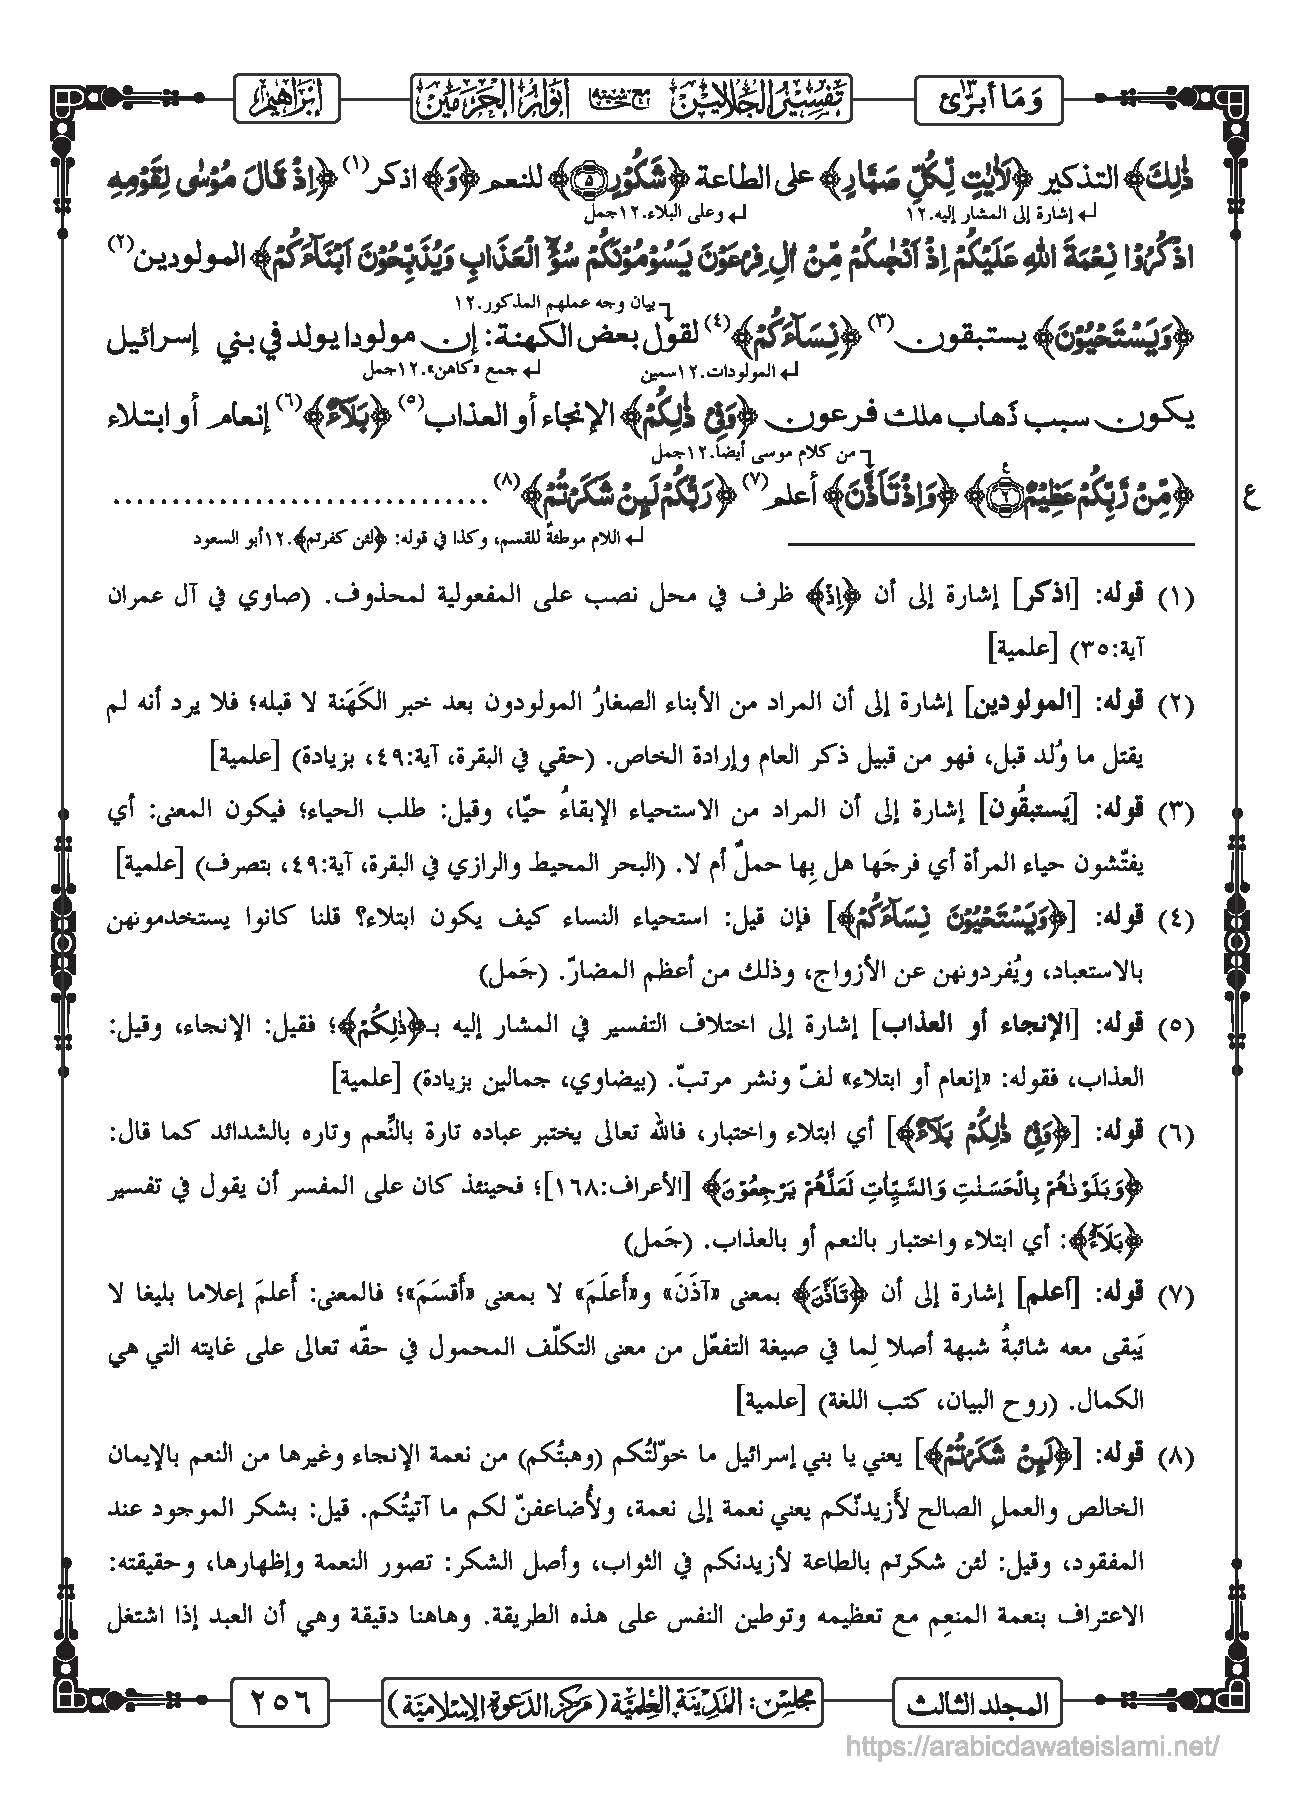 وَمَا أُبَرِّئُ ١٣
تفسير الجلالين مع حاشية أنوار الحرمين
إبراهيم
ذٰلِكَ﴾ التذكير ﴿لَاٰيٰتٍ لِّكُلِّ صَبَّارٍ﴾ على الطاعة ﴿شَكُوْرٍ ٥﴾ للنعم ﴿وَ﴾ اذكر(١) ﴿اِذْ قَالَ مُوْسٰى لِقَوْمِهِ
إشارة إلى المشار إليه.١٢ وعلى البلاء.١٢جمل
اذْكُرُوْا نِعْمَةَ اللهِ عَلَيْكُمْ اِذْ اَنْجٰىكُمْ مِّنْ اٰلِ فِرْعَوْنَ يَسُوْمُوْنَكُمْ سُوْٓءَ الْعَذَابِ وَيُذَبِّحُوْنَ اَبْنَآءَكُمْ﴾ المولودين(٢)
بيان وجه عملهم المذكور.١٢
﴿وَيَسْتَحْيُوْنَ﴾ يستبقون(٣) ﴿نِسَآءَكُمْ﴾(٤) لقول بعض الكهنة: إن مولودا يولد في بني إسرائيل
المولودات.١٢سمين جمع «كاهن».١٢جمل
يكون سبب ذَهاب ملك فرعون ﴿وَفِيْ ذٰلِكُمْ﴾ الإنجاء أو العذاب(٥) ﴿بَلَآءٌ﴾(٦) إنعام أو ابتلاء
من كلام موسى أيضاً.١٢جمل
﴿مِّنْ رَّبِّكُمْ عَظِيْمٌ ٦﴾ ﴿وَاِذْ تَاَذَّنَ﴾ أعلم(٧) ﴿رَبُّكُمْ لَئِنْ شَكَرْتُمْ﴾(٨) ......................................
ع
اللام موطئةٌ للقسم، وكذا في قوله: ﴿لئن كفرتم﴾.١٢أبو السعود
(١) قوله: [اذكر] إشارة إلى أن ﴿اِذْ﴾ ظرف في محل نصب على المفعولية لمحذوف. (صاوي في آل عمران
آية:٣٥) [علمية]
(٢) قوله: [المولودين] إشارة إلى أن المراد من الأبناء الصغارُ المولودون بعد خبر الكَهَنة لا قبله؛ فلا يرد أنه لم
يقتل ما وُلد قبل، فهو من قبيل ذكر العام وإرادة الخاص. (حقي في البقرة، آية:٤٩، بزيادة) [علمية]
(٣) قوله: [يَستبقُون] إشارة إلى أن المراد من الاستحياء الإبقاءُ حيًّا، وقيل: طلب الحياء؛ فيكون المعنى: أي
يفتّشون حياء المرأة أي فرجَها هل بِها حملٌ أم لا. (البحر المحيط والرازي في البقرة، آية:٤٩، بتصرف) [علمية]
(٤) قوله: [﴿وَيَسْتَحْيُوْنَ نِسَآءَكُمْ﴾] فإن قيل: استحياء النساء كيف يكون ابتلاء؟ قلنا كانوا يستخدمونهن
بالاستعباد، ويُفردونهن عن الأزواج، وذلك من أعظم المضارّ. (جَمل)
(٥) قوله: [الإنجاء أو العذاب] إشارة إلى اختلاف التفسير في المشار إليه بـ﴿ذٰلِكُمْ﴾؛ فقيل: الإنجاء، وقيل:
العذاب، فقوله: «إنعام أو ابتلاء» لفّ ونشر مرتبّ. (بيضاوي، جمالين بزيادة) [علمية]
(٦) قوله: [﴿وَفِيْ ذٰلِكُمْ بَلَآءٌ﴾] أي ابتلاء واختبار، فالله تعالى يختبر عباده تارة بالنِّعم وتاره بالشدائد كما قال:
﴿وَبَلَوْنٰهُمْ بِالْحَسَنٰتِ وَالسَّيِّاٰتِ لَعَلَّهُمْ يَرْجِعُوْنَ﴾ [الأعراف:١٦٨]؛ فحينئذ كان على المفسر أن يقول في تفسير
﴿بَلَآءٌ﴾: أي ابتلاء واختبار بالنعم أو بالعذاب. (جَمل)
(٧) قوله: [أعلم] إشارة إلى أن ﴿تَاَذَّنَ﴾ بمعنى «آذَنَ» و«أَعلَمَ» لا بمعنى «أَقسَمَ»؛ فالمعنى: أَعلمَ إعلاما بليغا لا
يَبقى معه شائبةُ شبهة أصلا لِما في صيغة التفعّل من معنى التكلّف المحمول في حقّه تعالى على غايته التي هي
الكمال. (روح البيان، كتب اللغة) [علمية]
(٨) قوله: [﴿لَئِنْ شَكَرْتُمْ﴾] يعني يا بني إسرائيل ما خوّلتُكم (وهبتُكم) من نعمة الإنجاء وغيرها من النعم بالإيمان
الخالص والعملِ الصالح لأَزيدنّكم يعني نعمة إلى نعمة، ولأُضاعفنّ لكم ما آتيتُكم. قيل: بشكر الموجود عند
المفقود، وقيل: لئن شكرتم بالطاعة لأزيدنكم في الثواب، وأصل الشكر: تصور النعمة وإظهارها، وحقيقته:
الاعتراف بنعمة المنعِم مع تعظيمه وتوطين النفس على هذه الطريقة. وهاهنا دقيقة وهي أن العبد إذا اشتغل
المجلد الثالث
مجلس: المدينة العلمية (مركز الدعوة الإسلامية)
٢٥٦
https://arabicdawateislami.net/